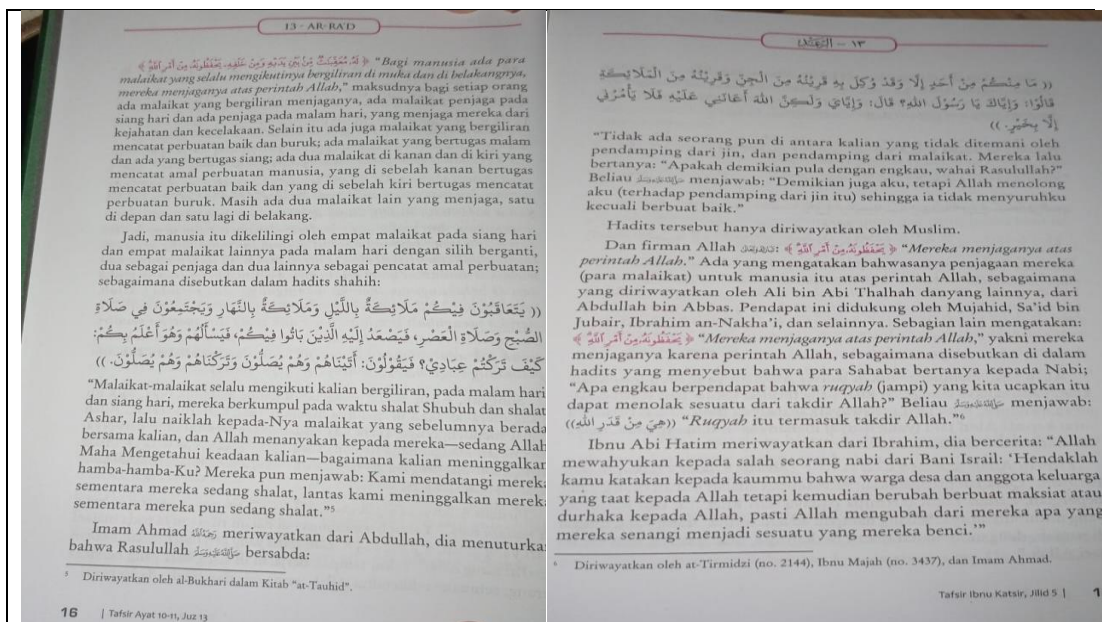 13 - AR-RA'D
﴿ لَهُ مُعَقِّبَاتٌ مِّنْ بَيْنِ يَدَيْهِ وَمِنْ خَلْفِهِ يَحْفَظُونَهُ مِنْ أَمْرِ اللَّهِ ﴾ "Bagi manusia ada para
malaikat yang selalu mengikutinya bergiliran di muka dan di belakangnya,
mereka menjaganya atas perintah Allah," maksudnya bagi setiap orang
ada malaikat yang bergiliran menjaganya, ada malaikat penjaga pada
siang hari dan ada penjaga pada malam hari, yang menjaga mereka dari
kejahatan dan kecelakaan. Selain itu ada juga malaikat yang bergiliran
mencatat perbuatan baik dan buruk; ada malaikat yang bertugas malam
dan ada yang bertugas siang; ada dua malaikat di kanan dan di kiri yang
mencatat amal perbuatan manusia, yang di sebelah kanan bertugas
mencatat perbuatan baik dan yang di sebelah kiri bertugas mencatat
perbuatan buruk. Masih ada dua malaikat lain yang menjaga, satu
di depan dan satu lagi di belakang.
Jadi, manusia itu dikelilingi oleh empat malaikat pada siang hari
dan empat malaikat lainnya pada malam hari dengan silih berganti,
dua sebagai penjaga dan dua lainnya sebagai pencatat amal perbuatan;
sebagaimana disebutkan dalam hadits shahih:
(( يَتَعَاقَبُوْنَ فِيْكُمْ مَلَائِكَةٌ بِاللَّيْلِ وَمَلَائِكَةٌ بِالنَّهَارِ وَيَجْتَمِعُوْنَ فِي صَلَاةِ
الصُّبْحِ وَصَلَاةِ الْعَصْرِ، فَيَصْعَدُ إِلَيْهِ الَّذِيْنَ بَاتُوا فِيْكُمْ، فَيَسْأَلُهُمْ وَهُوَ أَعْلَمُ بِكُمْ:
كَيْفَ تَرَكْتُمْ عِبَادِيْ؟ فَيَقُوْلُوْنَ: أَتَيْنَاهُمْ وَهُمْ يُصَلُّوْنَ وَتَرَكْنَاهُمْ وَهُمْ يُصَلُّوْنَ. ))
"Malaikat-malaikat selalu mengikuti kalian bergiliran, pada malam hari
dan siang hari, mereka berkumpul pada waktu shalat Shubuh dan shalat
Ashar, lalu naiklah kepada-Nya malaikat yang sebelumnya berada
bersama kalian, dan Allah menanyakan kepada mereka—sedang Allah
Maha Mengetahui keadaan kalian—bagaimana kalian meninggalkan
hamba-hamba-Ku? Mereka pun menjawab: Kami mendatangi merek
sementara mereka sedang shalat, lantas kami meninggalkan merek
sementara mereka pun sedang shalat."⁵
Imam Ahmad رحمه الله meriwayatkan dari Abdullah, dia menuturka
bahwa Rasulullah صلى الله عليه وسلم bersabda:
⁵ Diriwayatkan oleh al-Bukhari dalam Kitab "at-Tauhid".
16 | Tafsir Ayat 10-11, Juz 13
١٣ - الرَّعْد
(( مَا مِنْكُمْ مِنْ أَحَدٍ إِلَّا وَقَدْ وُكِلَ بِهِ قَرِيْنُهُ مِنَ الْجِنِّ وَقَرِيْنُهُ مِنَ الْمَلَائِكَةِ
قَالُوْا: وَإِيَّاكَ يَا رَسُوْلَ اللهِ؟ قَالَ: وَإِيَّايَ وَلَكِنَّ اللهَ أَعَانَنِي عَلَيْهِ فَلَا يَأْمُرُنِي
إِلَّا بِخَيْرٍ. ))
"Tidak ada seorang pun di antara kalian yang tidak ditemani oleh
pendamping dari jin, dan pendamping dari malaikat. Mereka lalu
bertanya: "Apakah demikian pula dengan engkau, wahai Rasulullah?"
Beliau صلى الله عليه وسلم menjawab: "Demikian juga aku, tetapi Allah menolong
aku (terhadap pendamping dari jin itu) sehingga ia tidak menyuruhku
kecuali berbuat baik."
Hadits tersebut hanya diriwayatkan oleh Muslim.
Dan firman Allah: ﴿ يَحْفَظُونَهُ مِنْ أَمْرِ اللَّهِ ﴾ "Mereka menjaganya atas
perintah Allah." Ada yang mengatakan bahwasanya penjagaan mereka
(para malaikat) untuk manusia itu atas perintah Allah, sebagaimana
yang diriwayatkan oleh Ali bin Abi Thalhah danyang lainnya, dari
Abdullah bin Abbas. Pendapat ini didukung oleh Mujahid, Sa'id bin
Jubair, Ibrahim an-Nakha'i, dan selainnya. Sebagian lain mengatakan:
﴿ يَحْفَظُونَهُ مِنْ أَمْرِ اللَّهِ ﴾ "Mereka menjaganya atas perintah Allah," yakni mereka
menjaganya karena perintah Allah, sebagaimana disebutkan di dalam
hadits yang menyebut bahwa para Sahabat bertanya kepada Nabi;
"Apa engkau berpendapat bahwa ruqyah (jampi) yang kita ucapkan itu
dapat menolak sesuatu dari takdir Allah?" Beliau صلى الله عليه وسلم menjawab:
((هِيَ مِنْ قَدَرِ اللهِ)) "Ruqyah itu termasuk takdir Allah."⁶
Ibnu Abi Hatim meriwayatkan dari Ibrahim, dia bercerita: "Allah
mewahyukan kepada salah seorang nabi dari Bani Israil: 'Hendaklah
kamu katakan kepada kaummu bahwa warga desa dan anggota keluarga
yang taat kepada Allah tetapi kemudian berubah berbuat maksiat atau
durhaka kepada Allah, pasti Allah mengubah dari mereka apa yang
mereka senangi menjadi sesuatu yang mereka benci.'"
⁶ Diriwayatkan oleh at-Tirmidzi (no. 2144), Ibnu Majah (no. 3437), dan Imam Ahmad.
Tafsir Ibnu Katsir, Jilid 5 | 1